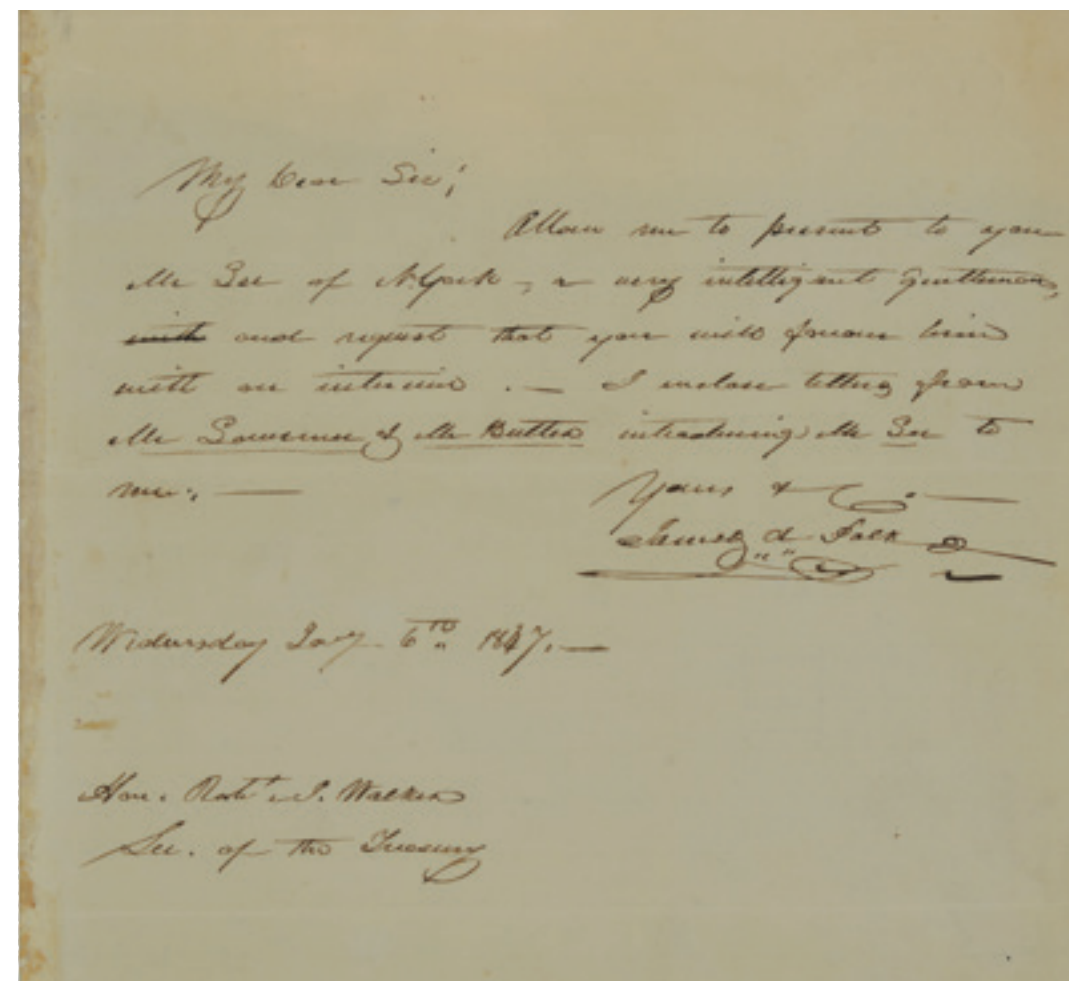 My Dear Sir;
Allow me to present to you
Mr of N. York, a very intelligent gentleman,
with and request that you will favour him
with an interview. — I enclose letters from
Mr & Mr Butler introducing Mr to
me. —
Yours &c. —
James K. Polk
Wednesday Jany 6th 1847. —
Hon. Robt. J. Walker
Sec. of the Treasury